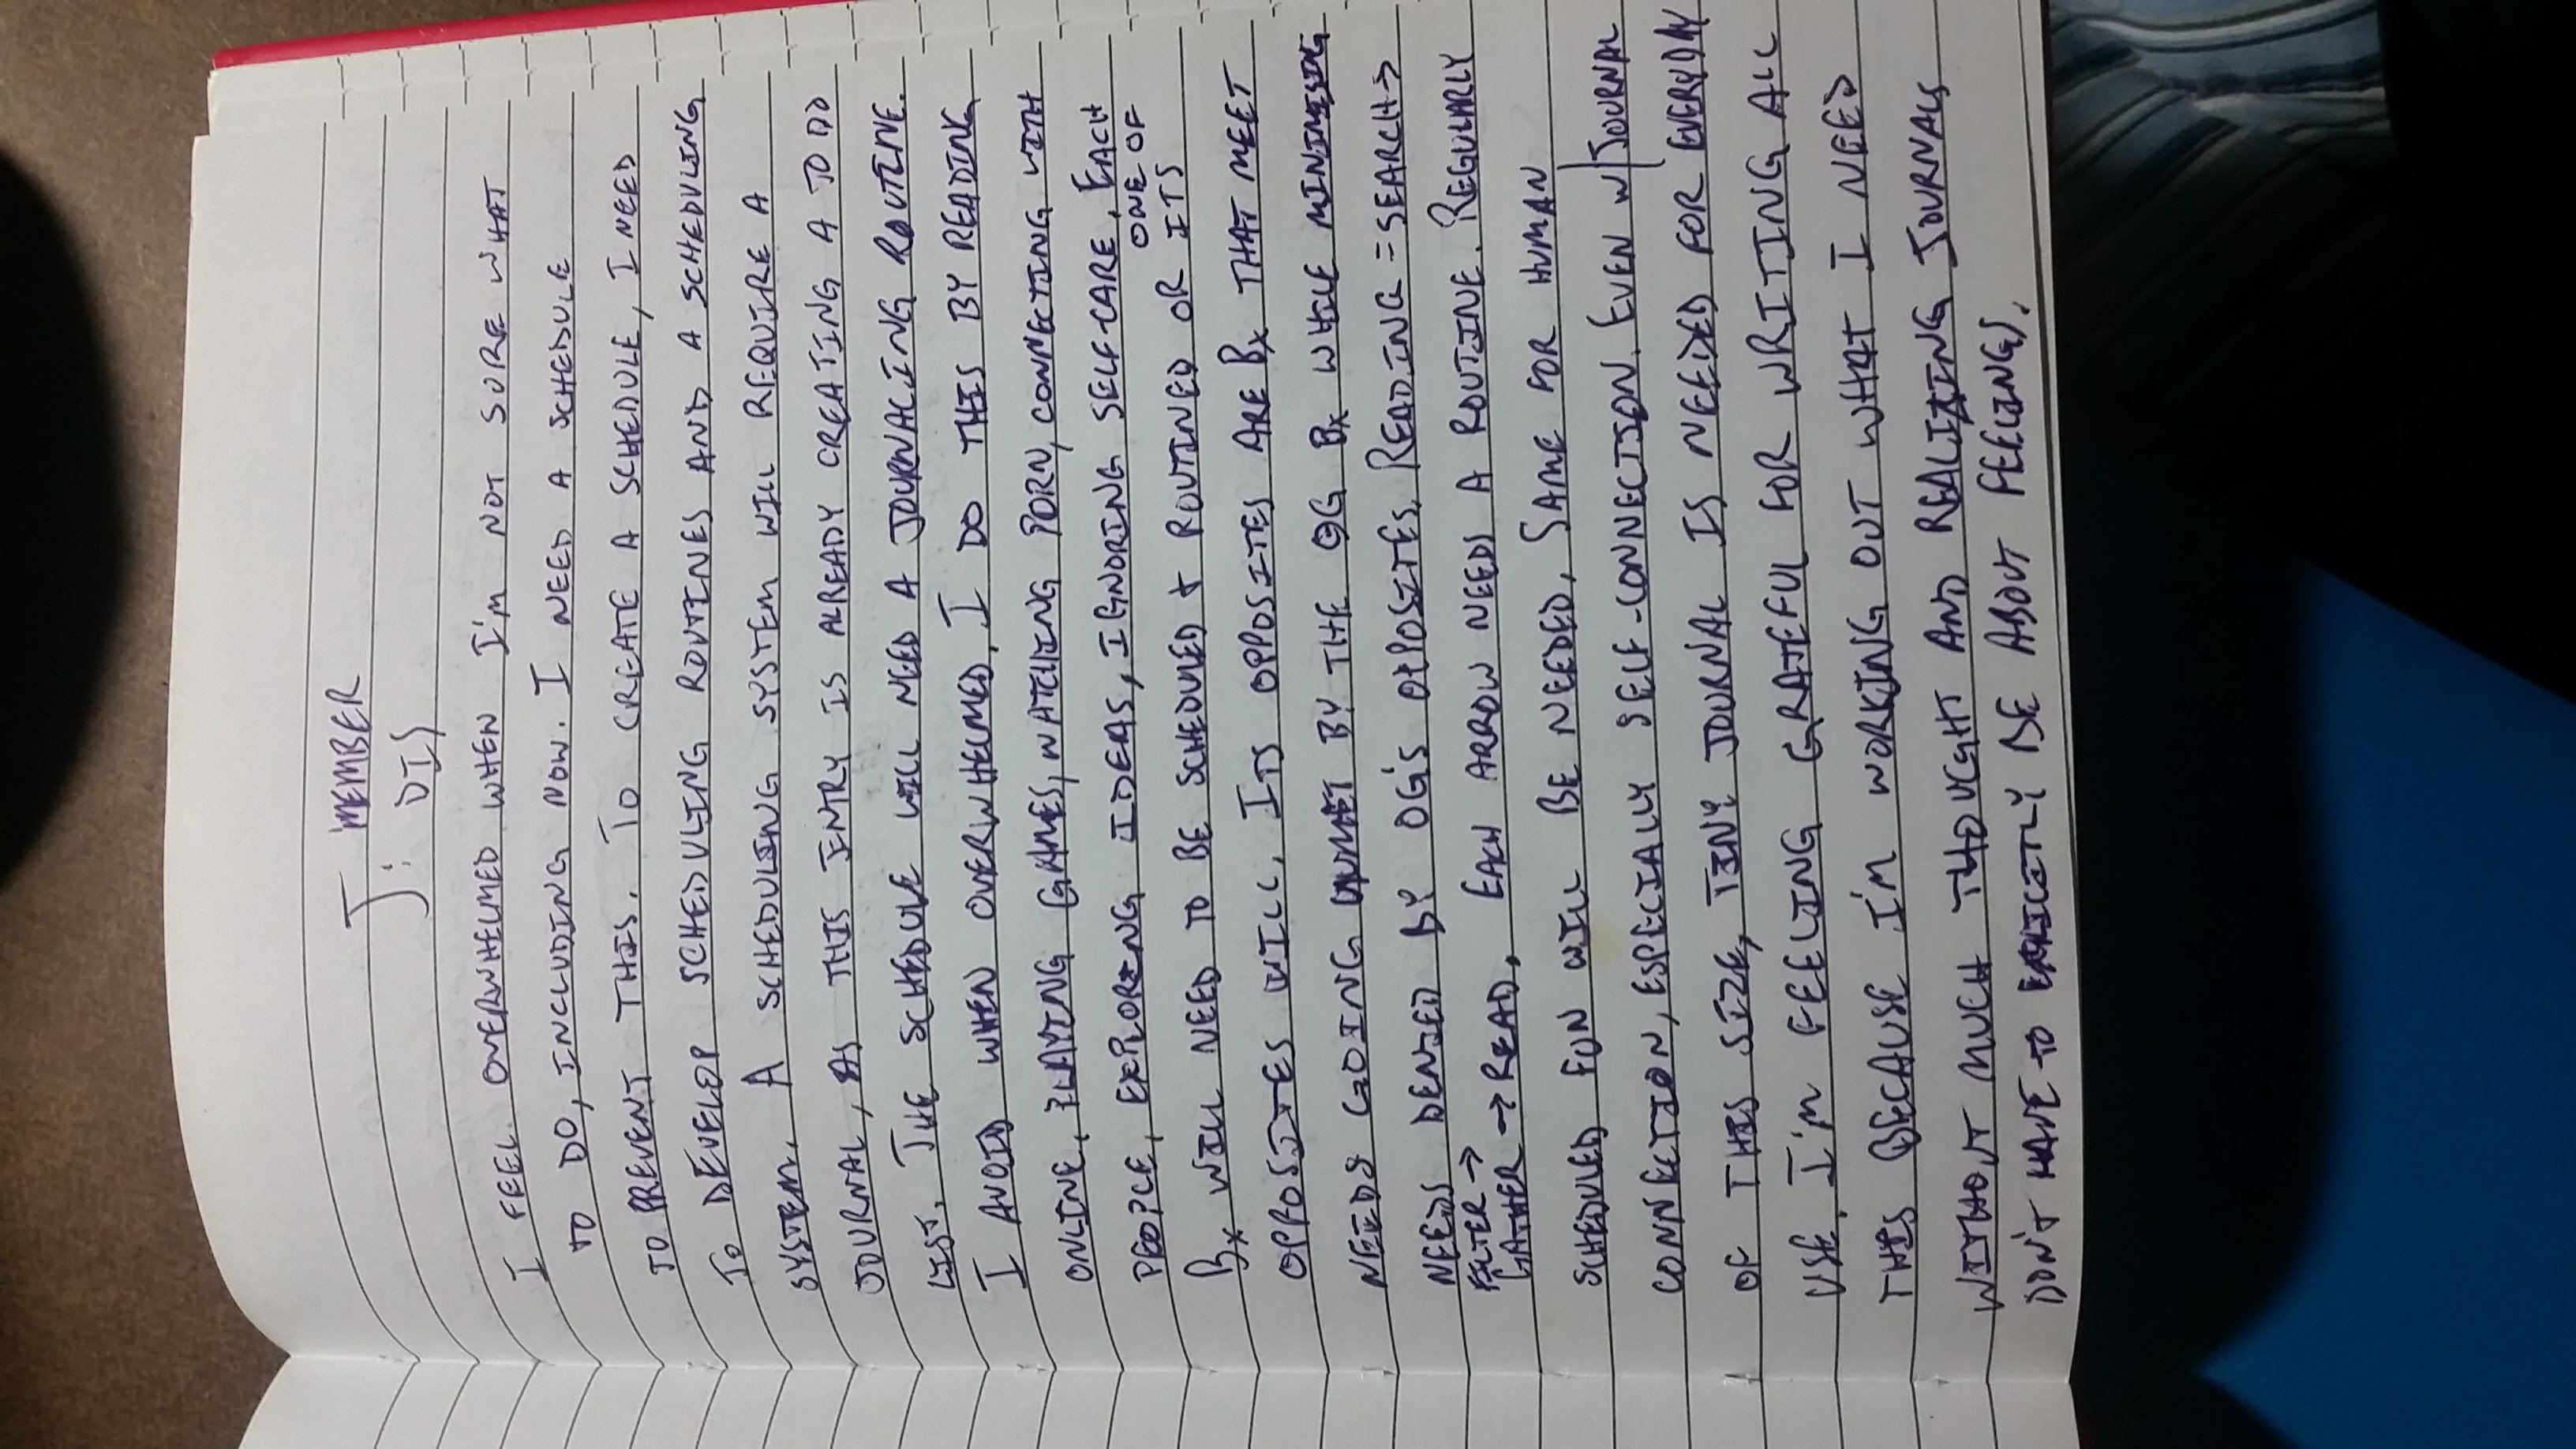 MEMBER
J: DIS
I FEEL OVERWHELMED WHEN I'M NOT SURE WHAT
TO DO, INCLUDING NOW. I NEED A SCHEDULE
TO PREVENT THIS. TO CREATE A SCHEDULE, I NEED
TO DEVELOP SCHEDULING ROUTINES AND A SCHEDULING
SYSTEM. A SCHEDULING SYSTEM WILL REQUIRE A
JOURNAL, AS THIS ENTRY IS ALREADY CREATING A TO DO
LIST. THE SCHEDULE WILL NEED A JOURNALING ROUTINE.
I AVOID WHEN OVERWHELMED. I DO THIS BY READING
ONLINE, PLAYING GAMES, WATCHING PORN, CONNECTING WITH
PEOPLE, EXPLORING IDEAS, IGNORING SELF-CARE. EACH
ONE OF
Bx WILL NEED TO BE SCHEDULED & ROUTINED OR ITS
OPPOSITES WILL. ITS OPPOSITES ARE Bx THAT MEET
NEEDS GOING UNMET BY THE OG Bx WHILE MINIMISING
NEEDS DENIED BY OG'S OPPOSITES. READING = SEARCH →
FILTER →
GATHER → READ. EACH ARROW NEEDS A ROUTINE. REGULARLY
SCHEDULED FUN WILL BE NEEDED. SAME FOR HUMAN
CONNECTION, ESPECIALLY SELF-CONNECTION. EVEN W/ JOURNAL
OF THIS SIZE, TINY JOURNAL IS NEEDED FOR EVERYDAY
USE. I'M FEELING GRATEFUL FOR WRITING ALL
THIS BECAUSE I'M WORKING OUT WHAT I NEED
WITHOUT MUCH THOUGHT AND REALIZING JOURNALS
DON'T HAVE TO EXPLICITLY BE ABOUT FEELINGS.